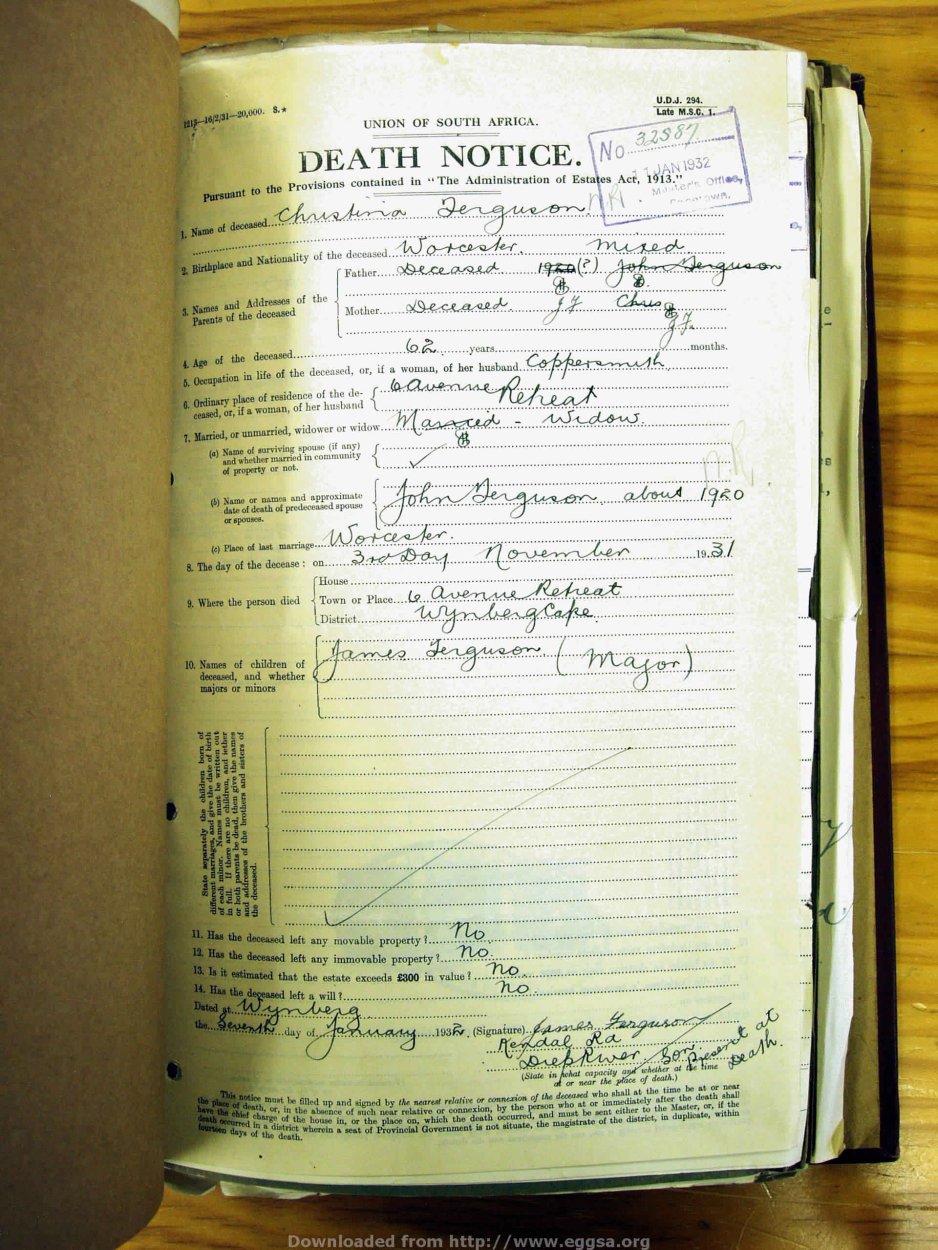 1213—16/2/31—20,000. S.*
U.D.J. 294.
Late M.S.C. 1.
UNION OF SOUTH AFRICA.
No 32587
11 JAN 1932
Master's Office,
DEATH NOTICE.
Pursuant to the Provisions contained in "The Administration of Estates Act, 1913."
1. Name of deceased Christina Ferguson
2. Birthplace and Nationality of the deceased Worcester. Mixed
3. Names and Addresses of the Parents of the deceased
Father Deceased 1920 (?) John Ferguson
Mother Deceased. J F Chris
J F.
4. Age of the deceased 62 years months.
5. Occupation in life of the deceased, or, if a woman, of her husband Coppersmith
6. Ordinary place of residence of the de-
ceased, or, if a woman, of her husband
6 Avenue Retreat
7. Married, or unmarried, widower or widow Married - Widow.
(a) Name of surviving spouse (if any)
and whether married in community
of property or not.
(b) Name or names and approximate
date of death of predeceased spouse
or spouses.
John Ferguson about 1920
(c) Place of last marriage Worcester.
8. The day of the decease: on 3rd Day November 1931
9. Where the person died
House
Town or Place 6 Avenue Retreat
District Wynberg Cape
10. Names of children of
deceased, and whether
majors or minors
James Ferguson (Major)
State separately the children born of
different marriages, and give the date of birth
of each minor. Names must be written out
in full. If there are no children, and either
or both parents be dead, then give the names
and addresses of the brothers and sisters of
the deceased.
11. Has the deceased left any movable property? No
12. Has the deceased left any immovable property? No.
13. Is it estimated that the estate exceeds £300 in value? No
14. Has the deceased left a will? No.
Dated at Wynberg
the Seventh day of January 1932. (Signature) James Ferguson
Kendal Rd
Diep River. Son. Present at Death.
(State in what capacity and whether at the time
at or near the place of death.)
This notice must be filled up and signed by the nearest relative or connexion of the deceased who shall at the time be at or near
the place of death, or, in the absence of such near relative or connexion, by the person who at or immediately after the death shall
have the chief charge of the house in, or the place on, which the death occurred, and must be sent either to the Master, or, if the
death occurred in a district wherein a seat of Provincial Government is not situate, the magistrate of the district, in duplicate, within
fourteen days of the death.
Downloaded from http://www.eggsa.org